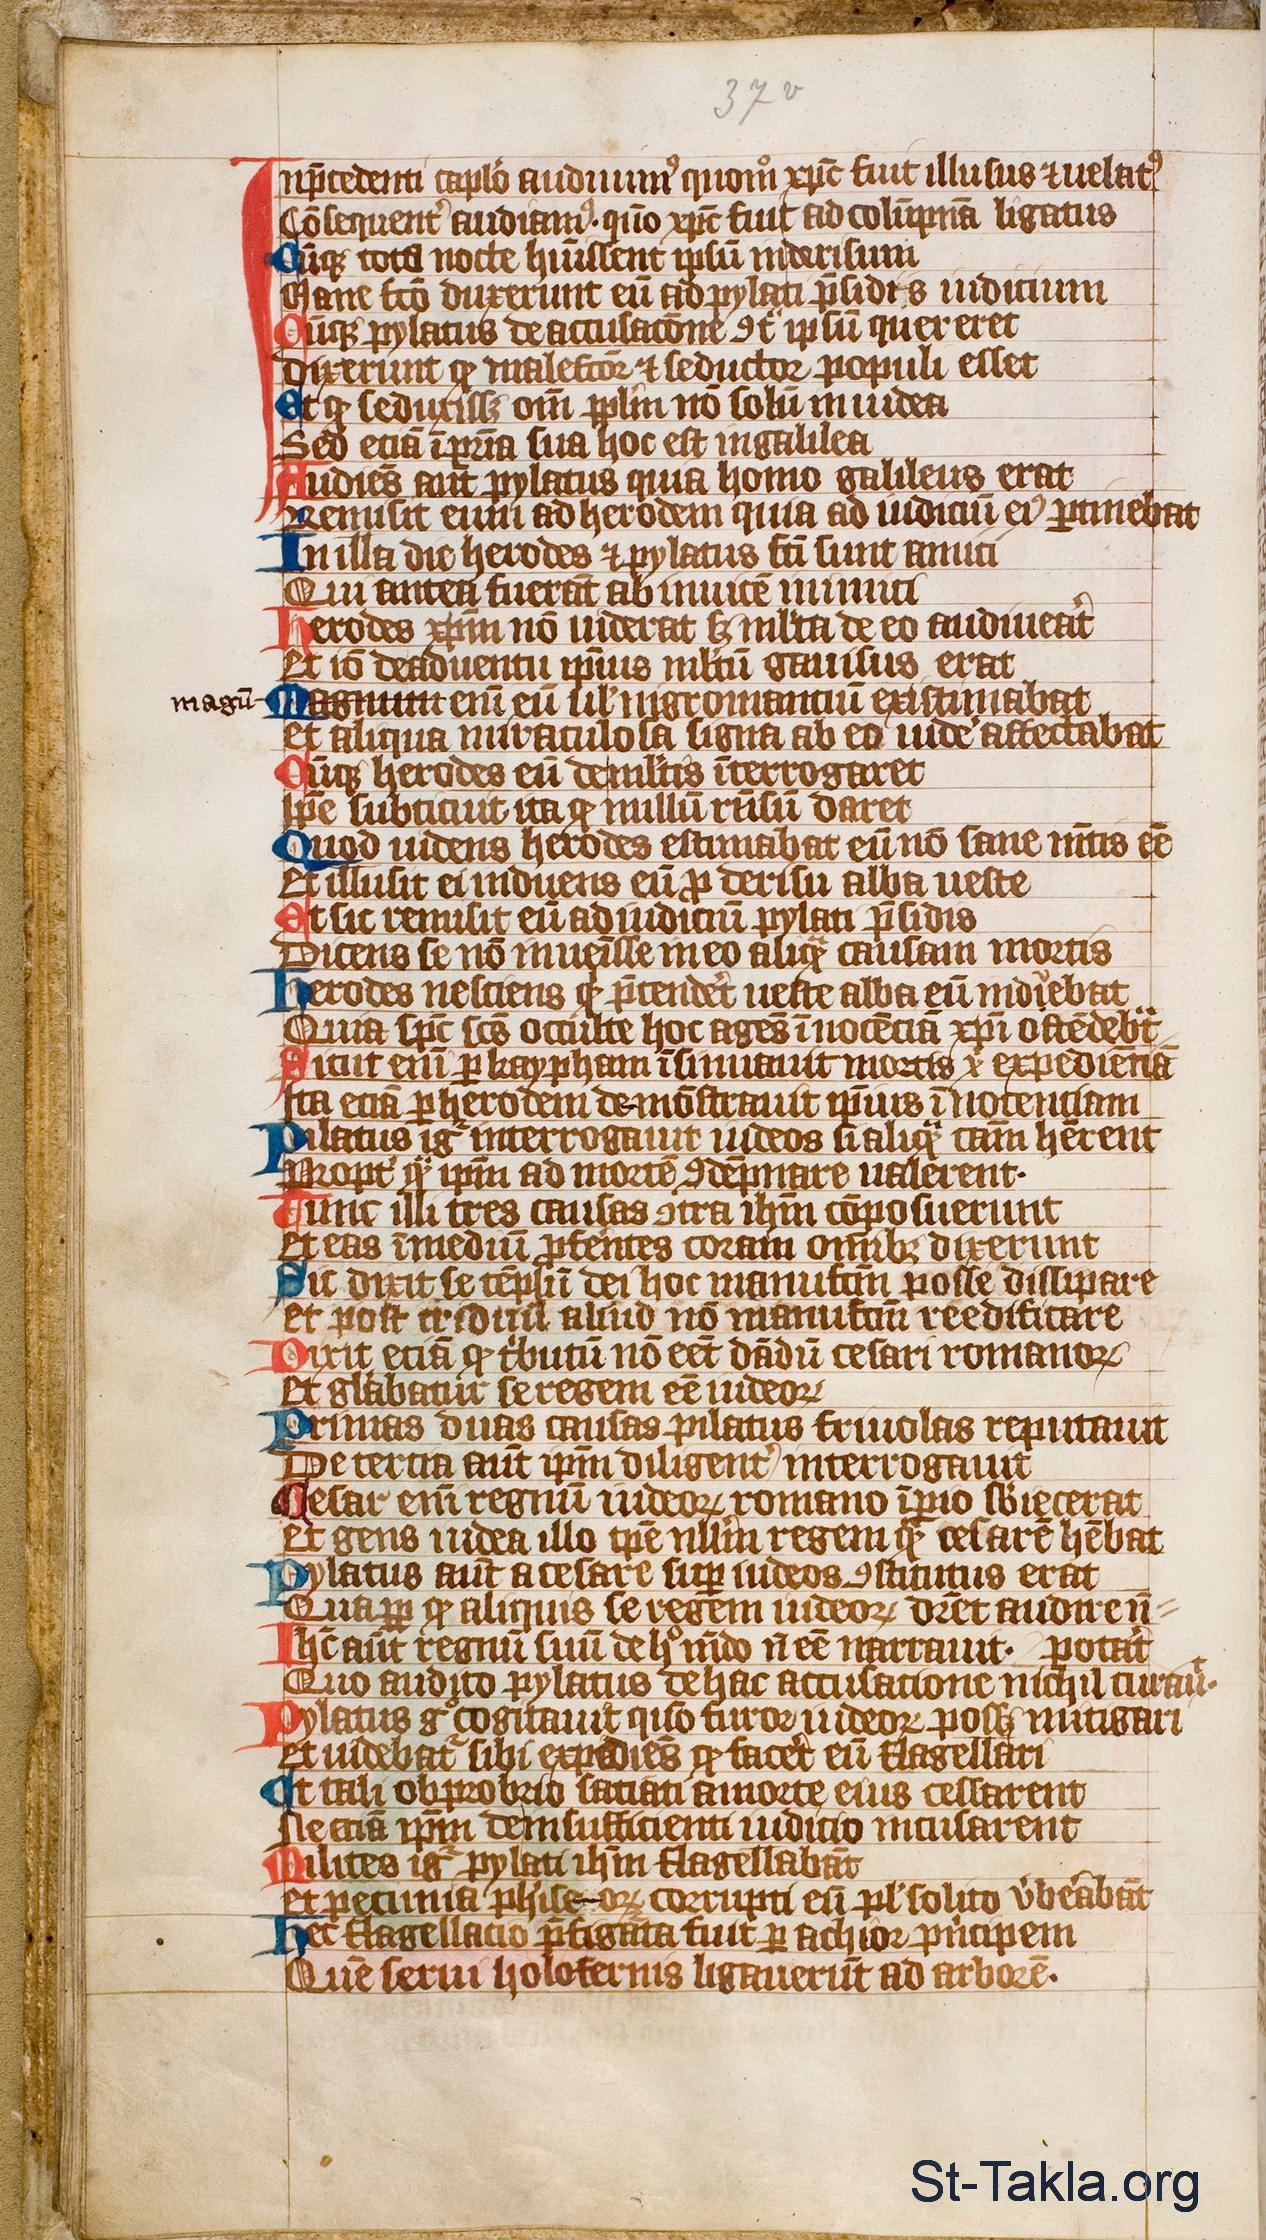 37v
In p̄cedenti caplo audiuimꝰ quomo xpc̄ fuit illusus ⁊ uelatꝰ
Cōsequent᾽ audiamꝰ. quo xpc̄ fuit ad colūpnā ligatus
Cūqꝫ tota nocte huīssent ipsū in derisum
Mane fcō duxerunt eū ad pylati p̄sidis iudicium
Cūqꝫ pylatus de accusatōne ꝯt᾽ ipsū quereret
Dixerunt ꝙ malefcōr ⁊ seductor populi esset
Et ꝙ seduxissꝫ om̄ ꝑplm̄ nō solū in iudea
Sed eciā ī pr̄ia sua hoc est in galilea
Audiēs aut̄ pylatus quia homo galileus erat
Remisit eum ad herodem quia ad iudiciū eiꝰ ꝑtinebat
In illa die herodes ⁊ pylatus fc̄i sunt amici
Qui antea fuerāt ab inuicē inimici
Herodes xp̄m nō uiderat sꝫ ml̄ta de eo audiueāt
Et iō de aduentu ip̄ius ml̄tū gauisus erat
magū Magnum eni᷒ eū ul᾽ nigromanciū existimabat
et aliqua miraculosa signa ab eo uide᾽ affectabat
Cūqꝫ herodes eū de ml̄tis īterrogaret
Ip̄e subticuit ita ꝙ nullū rn̄sū daret
Quod uidens herodes estimabat eū nō sane mn̄tis eē
Et illusit ei induens eū ꝓ derisu alba ueste
Et sic remisit eū ad iudiciū pylati p̄sidis
Dicens se nō inuēisse in eo aliqᷓ causam mortis
Herodes nesciens qͥ p̄tender᾽ ueste alba eū induebat
Quia spc̄ scs̄ occulte hoc agēs īnocēciā xpi᷒ ostēdebāt
Sicut eni᷒ ꝑ kaypham īsinuauit mortis x᷒ expedienciā
Ita eciā ꝑ herodem demōstrauit ip̄ius īnocentiam
Pilatus ig᾽ interrogauit iudeos si aliqᷓ cām hēr̄ent
Propt᾽ qᷓ ip̄m ad mortē ꝯdēpnare ualerent.
Tunc illi tres causas ꝯtra ihm̄ cōposuerunt
et eas ī mediū ꝓfēr̄tes coram om̄ibꝫ dixerunt
Sic dixit se tēplū dei hoc manufcm̄ posse dissipare
et post triduū aliud nō manufcm̄ reedificare
Dixit eciā ꝙ tͥbutū nō eēt dādū cesari romanoꝝ
Et gl̄abatur se regem eē iudeoꝝ
Primas duas causas pilatus friuolas reputauit
De tercia aut̄ ip̄m diligent᾽ interrogauit
Cesar eni᷒ regnū iudeoꝝ romano īꝑio sb̄iecerat
et gens iudea illo tp̄e nllm̄ regem qᷓ cesarē hēbat
Pylatus aut̄ a cesare suꝑ iudeos ꝯstitutus erat
Quaꝓꝑ ꝙ aliquis se regem iudeoꝝ dr̄et audire n̄=
Ihc̄ aut̄ regnū suū de hͦ mūdo n̄ eē narrauit. poterāt
Quo audito pylatus de hac accusatione nichil curauit.
Pylatus gͦ cogitauit quo furor iudeoꝝ possꝫ mitigari
Et uidebatᷓ sibi expediēs ꝙ facer᾽ eū flagellari
Ut tali obprobrio saciati a morte eius cessarent
Ne eciā ip̄m de insufficienti iudicio incusarent
Milites ig᾽ pylati ihm̄ flagellabāt
et pecunia ph᾽ise-oꝝ corrupti eū pl᾽ solito ūbeabāt
Hec flagellacio p̄figata fuit ꝑ achior pͥncipem
Quē serui holofernis ligauerūt ad arborē.
St-Takla.org